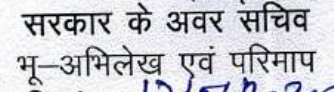 सरकार के अवर सचिव
भू–अभिलेख एवं परिमाप